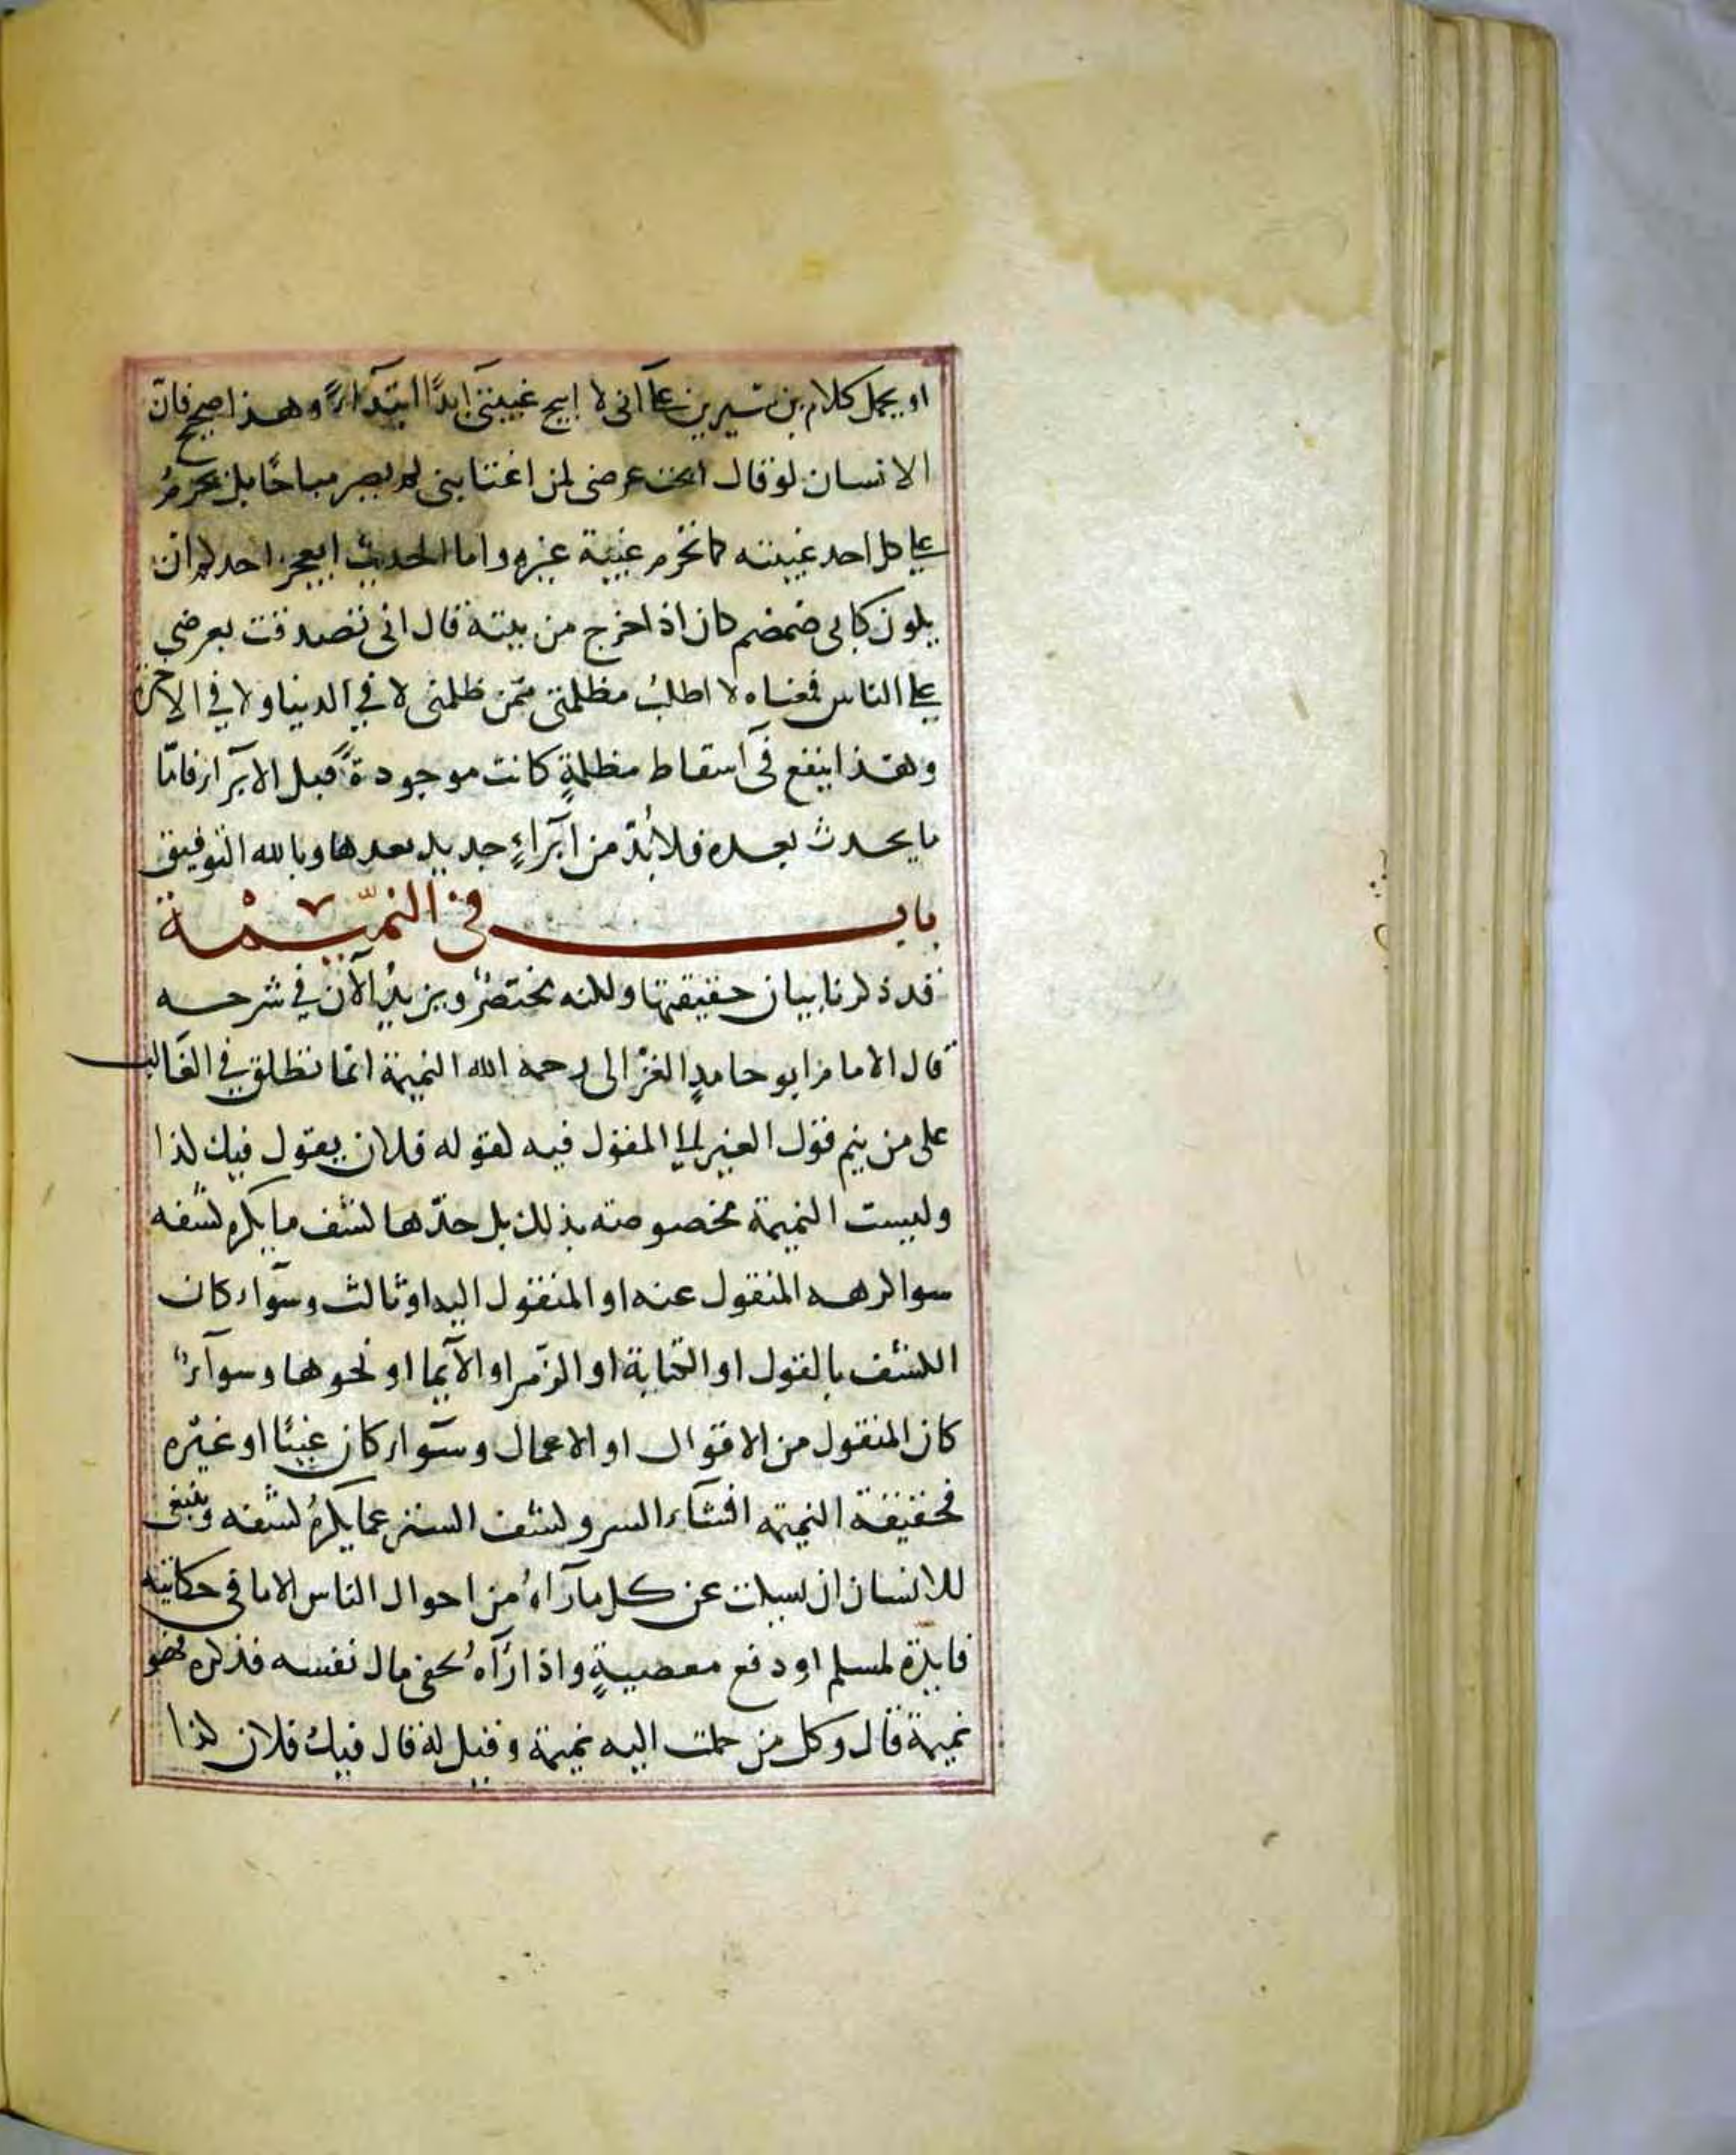 او يحمل كلام بن سيرين على اني لا ابيح غيبتي ابدًا ابتدآءً وهذا صحيح فانّ
الانسان لو قال ابحت عرضي لمن اغتابني لم يصر مباحًا بل يحرمُ
على كل احد غيبته كما تحرم غيبة غيره واما الحديث ايعجز احدكم ان
يكون كابي ضمضم كان اذا خرج من بيته قال اني تصدقت بعرضي
على الناس فمعناه لا اطلبُ مظلمتي ممّن ظلمني لا في الدنيا ولا في الاخرة
وهذا ينفع في اسقاط مظلمةٍ كانت موجودةً قبل الابرآء فامّا
ما يحدث بعده فلا بُدّ من ابرآءٍ جديد بعدها وبالله التوفيق
باب في النّميمة
قد ذكرنا بيان حقيقتها ولكنه مختصرٌ ويزيدُ الآن في شرحه
قال الامام ابو حامدٍ الغزالي رحمه الله النميمة انما تطلق في الغالب
على من ينم قول الغير الى المقول فيه كقوله فلان يقول فيك كذا
وليست النميمة مخصوصته بذلك بل حدّها كشف ما يكره كشفه
سوا كرهه المنقول عنه او المنقول اليه او ثالث وسوآء كان
الكشف بالقول او الكتابة او الرّمز او الآيما او نحوها وسوآءٌ
كان المنقول من الاقوال او الاعمال وسوآء كان عيبًا او غيره
فحقيقة النميمه افشآء السر وكشف الستر عما يكرهُ كشفه وينبغي
للانسان ان يسكت عن كل ما رآهُ من احوال الناس الا ما في حكايته
فايدة لمسلم او دفع معصيةٍ واذا رآهُ يخفي مال نفسه فذكره فهو
نميمة قال وكل من حملت اليه نميمة وقيل له قال فيك فلان كذا